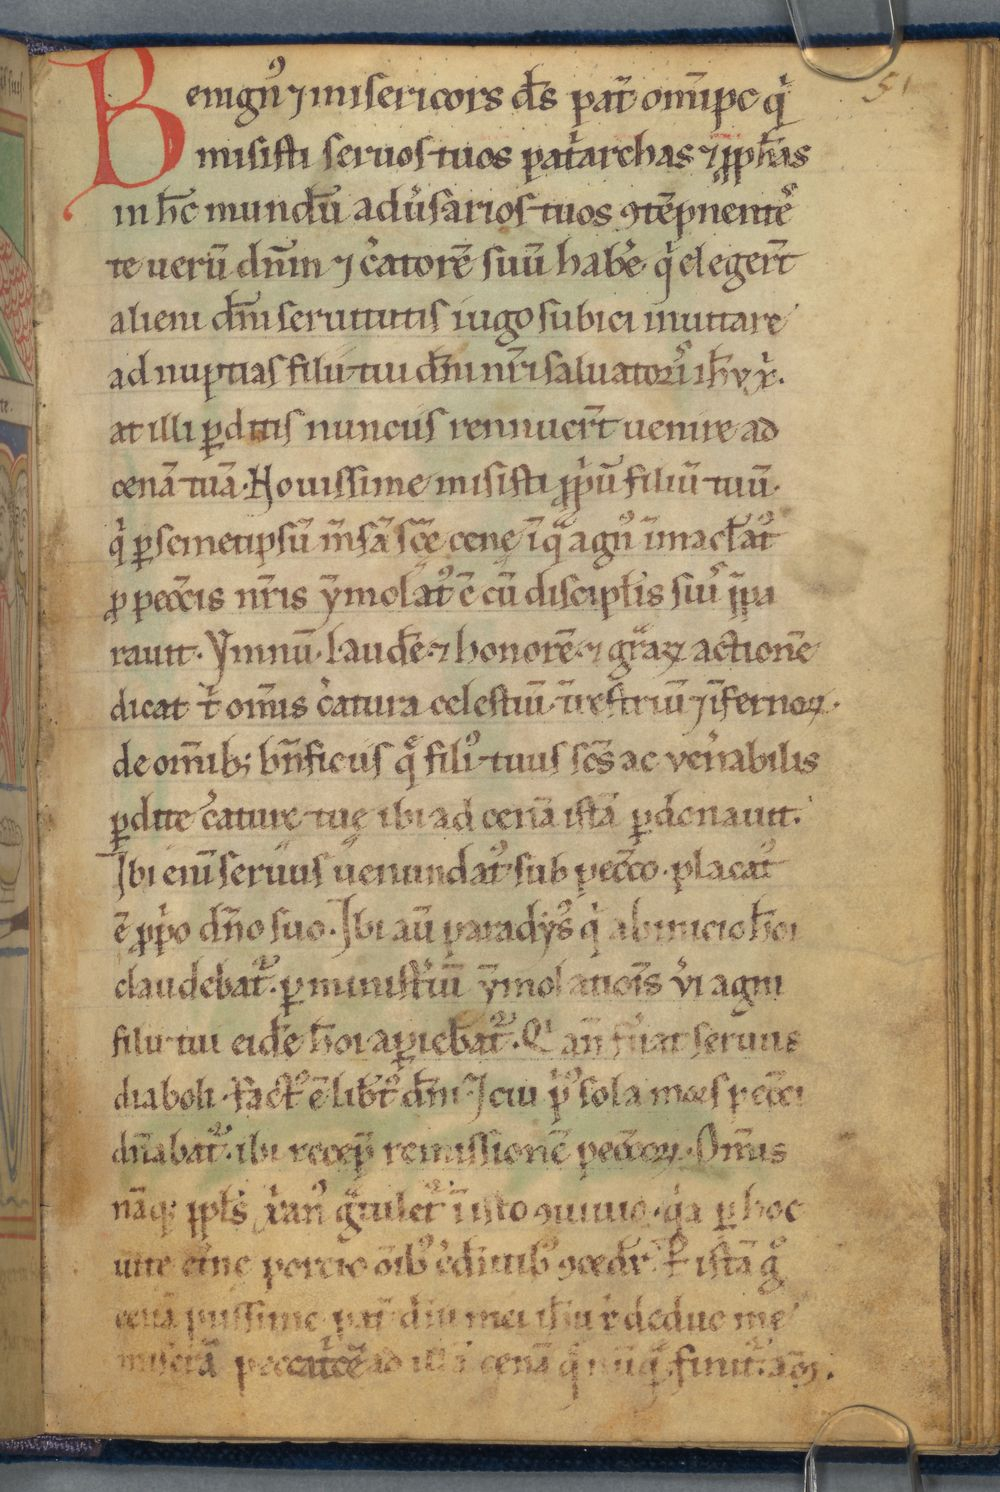 51
Benigꝰ ⁊ misericors d̄s pat̄ om̄ipc̄ qͥ
misisti seruos tuos patͥarchas ⁊ p̱ph̄as
in hc̄ mundū aduͥsarios tuos ꝯtēpnentꝭ
te uerū dn̄m ⁊ cͥatorē suū habē qͥ elegert̄
alieni dn̄i seruitutis iugo subici inuitare
ad nuptias filii tui dn̄i nr̄i saluatorꝭ ih̄v xͥ.
at illi ꝑditis nunciis rennuert̄ uenire ad
cenā tuā. Nouissime misisti ꝓpͥū filiū tuū.
qͥ ꝑ semetipsū m̄sā sc̄e cenę ī qͣ agnꝰ īmaclatꝰ
ꝓ pecc̄is nr̄is ȳmolatꝰ ē cū discipl̄is suiꝭ p̄pa
rauit. Ymnū. laudē. ⁊ honorē. ⁊ gr̄aꝝ actionē
dicat t̄ om̄is cͥatura celestiū. t̄restriū ⁊ īfernoꝝ.
de om̄ibꝫ bn̄ficiis qͤ filiꝰ tuus sc̄s ac ven̄abilis
ꝑdite cͥature tuę ibi ad cenā istā ꝑdonauit.
Ibi enī seruus uenundatꝰ sub pecc̄o. placatꝰ
ē ꝓpͥo dn̄o suo. Ibi aū paradysꝰ qͥ ab inicio hōi
claudebatᷣ. ꝑ ministͥiū ȳmolationis vͥi agni
filii tui eidē hōi aꝑiebatᷣ. Q an̄ fuͥat seruus
diaboli. factꝰ ē libt̄ꝰ dn̄i. ⁊ cui pͥꝰ sola mors pecc̄i
dn̄abatᷣ. ibi recep̄ remissionē pecc̄oꝝ. Om̄is
nāqꝫ ppl̄s xͥanꝰ gͣtuletᷣ ī isto ꝯuiuio. qͥa ꝑ hoc
uite etͥne porcio
cenā piissime pat̄ dn̄i mei ih̄u xͥ deduc me
miserā peccatͥcē ad illā cenā